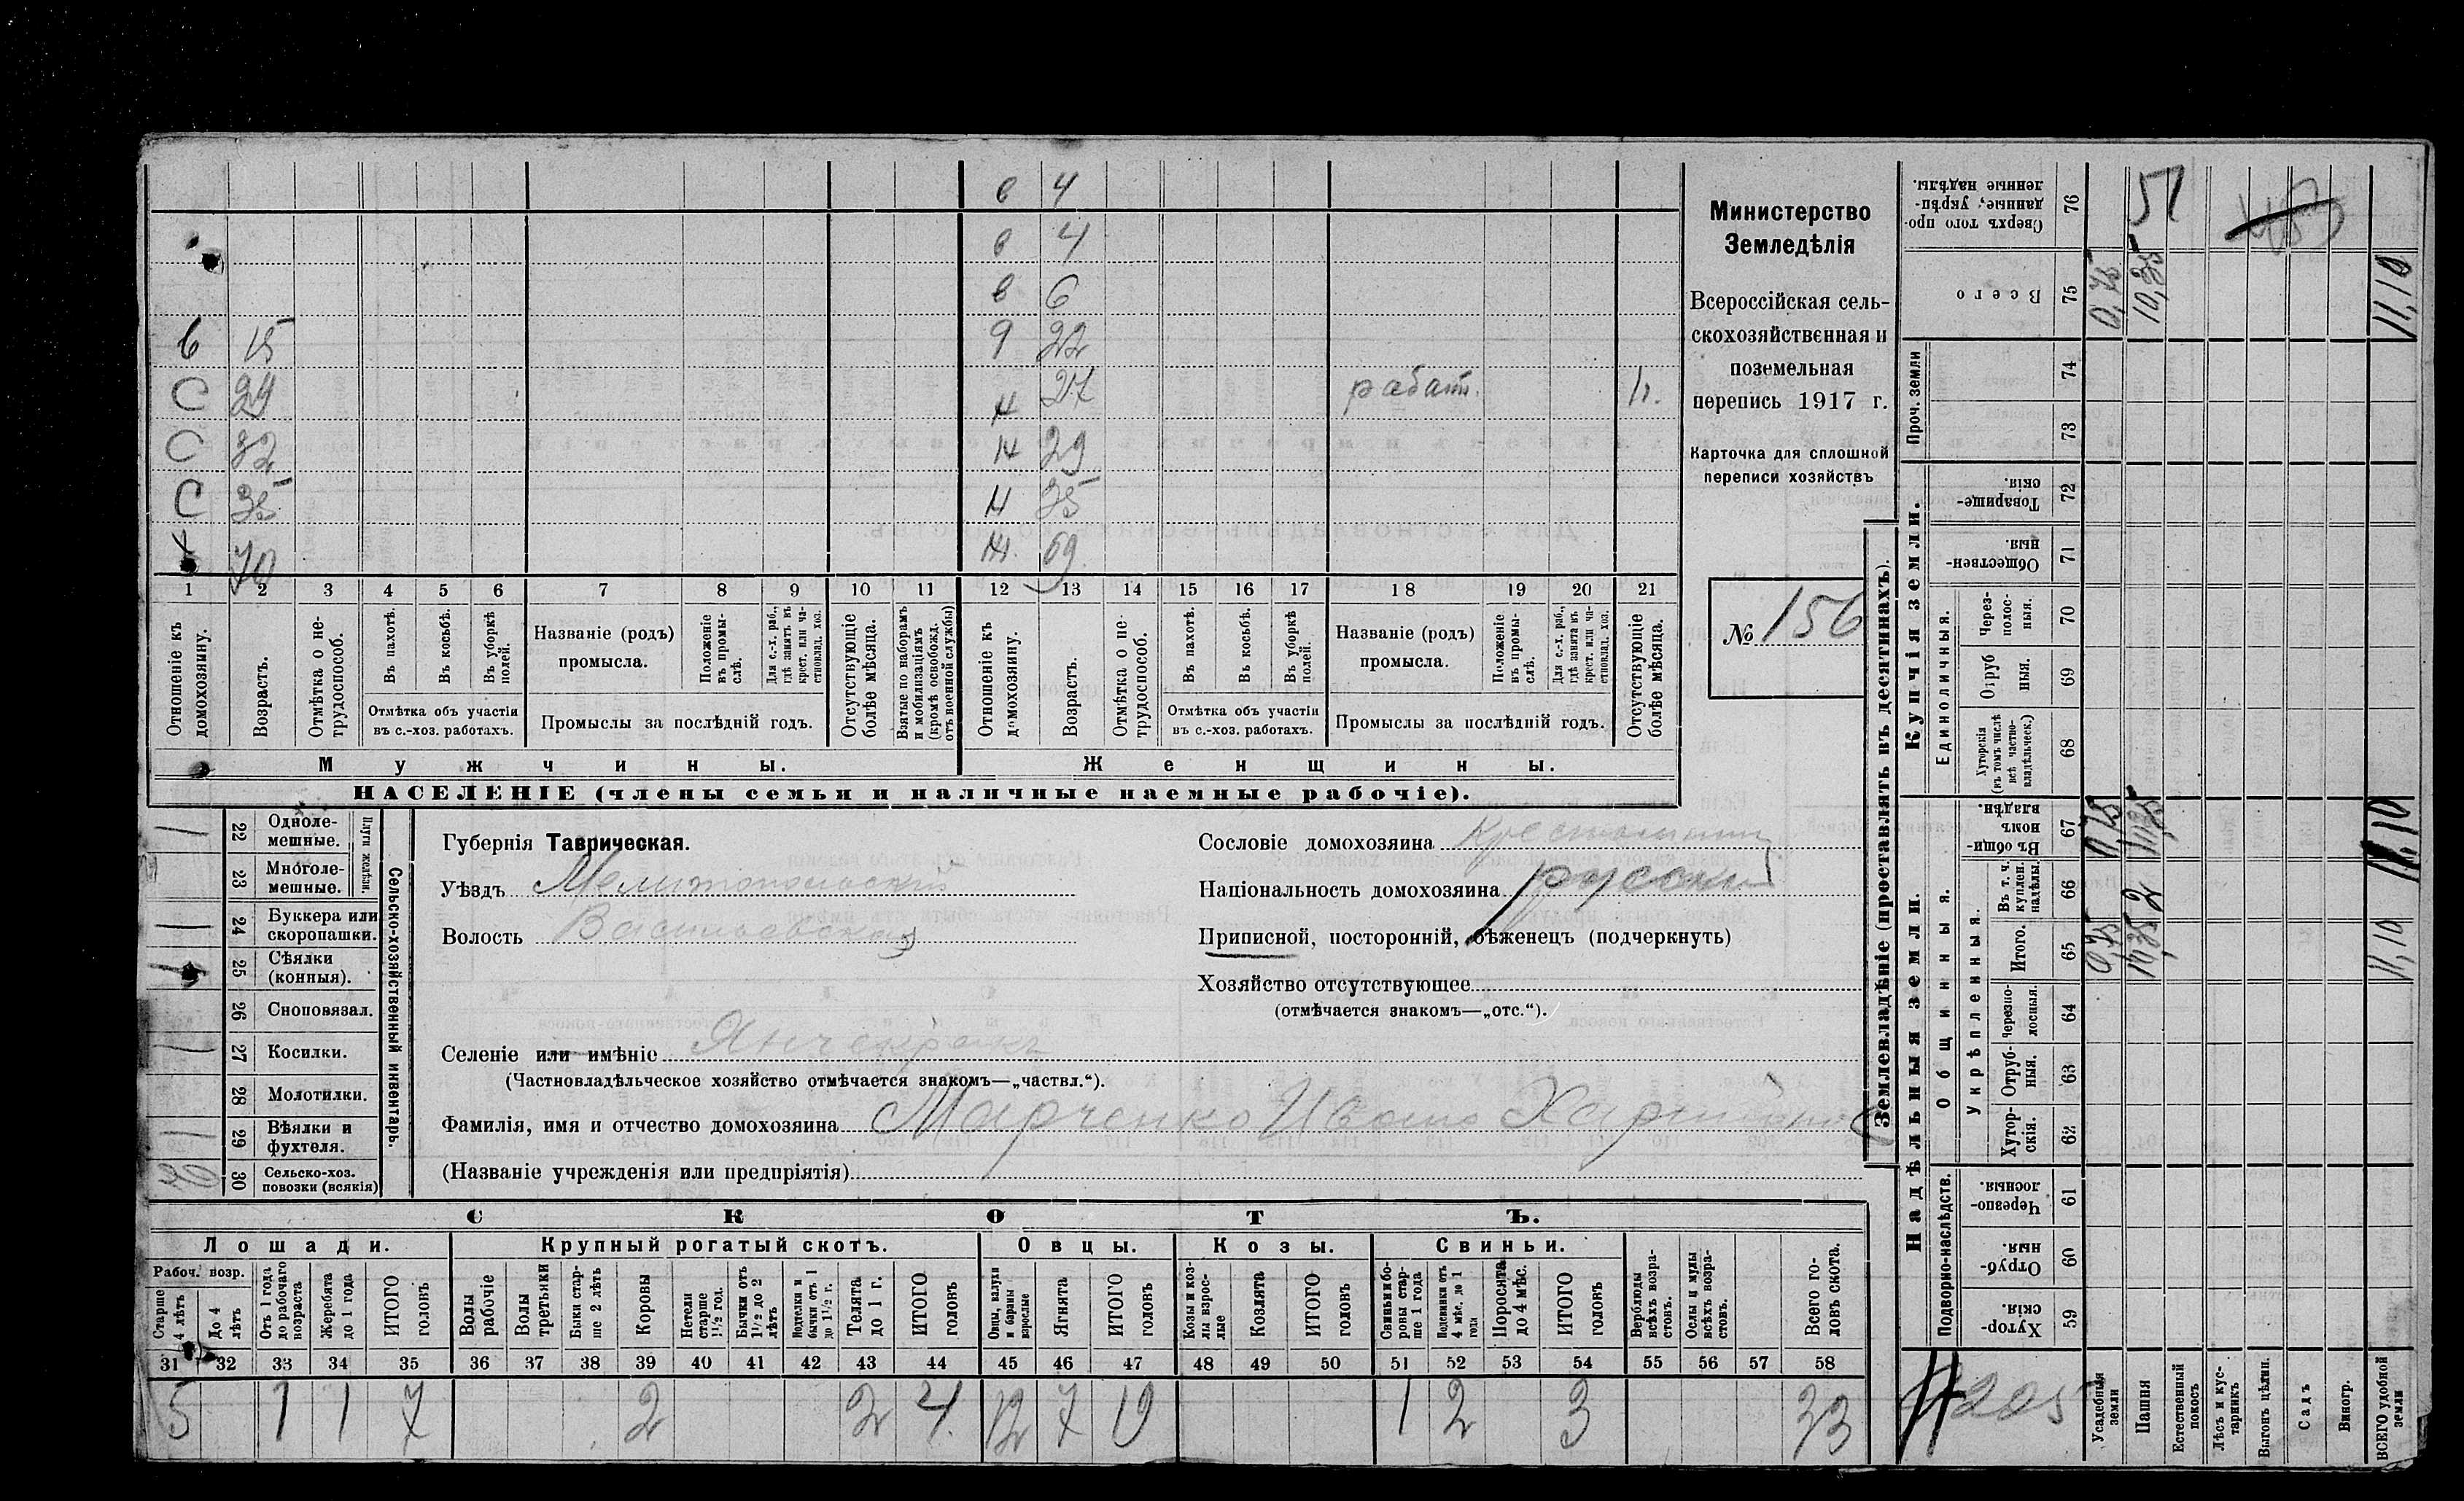 в 4
в 4
в 6
в 15 9 22
С 29 н 27 работ. 1г.
С 32 н 29
С 35 н 35
х 70 м. 69
1 2 3 4 5 6 7 8 9 10 11 12 13 14 15 16 17 18 19 20 21
Отношеніе къ домохозяину.
Возрастъ.
Отмѣтка о нетрудоспособ.
Въ пахотѣ.
Въ косьбѣ.
Въ уборкѣ полей.
Отмѣтка объ участіи въ с.-хоз. работахъ.
Названіе (родъ) промысла.
Положеніе въ промыслѣ.
Для с.-х. раб., гдѣ занятъ въ крест. или частновлад. хоз.
Промыслы за послѣдній годъ.
Отсутствующіе болѣе мѣсяца.
Взятые по наборамъ и мобилизаціямъ (кромѣ освобожд. отъ военной службы)
Отношеніе къ домохозяину.
Возрастъ.
Отмѣтка о нетрудоспособ.
Въ пахотѣ.
Въ косьбѣ.
Въ уборкѣ полей.
Отмѣтка объ участіи въ с.-хоз. работахъ.
Названіе (родъ) промысла.
Положеніе въ промыслѣ.
Для с.-х. раб., гдѣ занята въ крест. или частновлад. хоз.
Промыслы за послѣдній годъ.
Отсутствующіе болѣе мѣсяца.
Мужчины. Женщины.
НАСЕЛЕНІЕ (члены семьи и наличные наемные рабочіе).
Министерство
Земледѣлія
Всероссійская сель-
скохозяйственная и
поземельная
перепись 1917 г.
Карточка для сплошной
переписи хозяйствъ
№ 156
Сельско-хозяйственный инвентарь.
Плуги желѣзн.
22 Однолемешные.
23 Многолемешные.
24 Буккера или скоропашки.
25 Сѣялки (конныя).
26 Сноповязал.
27 Косилки.
28 Молотилки.
29 Вѣялки и фухтеля.
30 Сельско-хоз. повозки (всякія)
Губернія Таврическая.
Уѣздъ Мелитопольский
Волость Васильевская
Сословіе домохозяина Крестьянин
Національность домохозяина русский
Приписной, посторонній, бѣженецъ (подчеркнуть)
Хозяйство отсутствующее
(отмѣчается знакомъ—„отс.“).
Селеніе или имѣніе Янчекракъ
(Частновладѣльческое хозяйство отмѣчается знакомъ—„частвл.“).
Фамилія, имя и отчество домохозяина Марченко Иванъ Харитонов
(Названіе учрежденія или предпріятія)
СКОТЪ.
Лошади. Крупный рогатый скотъ. Овцы. Козы. Свиньи.
Рабоч. возр.
Старше 4 лѣтъ
До 4 лѣтъ
Отъ 1 года до рабочаго возраста
Жеребята до 1 года
ИТОГО головъ
Волы рабочіе
Волы третьяки
Быки старше 2 лѣтъ
Коровы
Нетели старше 1 1/2 год.
Бычки отъ 1 1/2 до 2 лѣтъ
Подтелки и бычки отъ 1 до 1 1/2 г.
Телята до 1 г.
ИТОГО головъ
Овцы, валухи и бараны взрослые
Ягнята
ИТОГО головъ
Козы и козлы взрослые
Козлята
ИТОГО головъ
Свиньи и боровы старше 1 года
Подсвинки отъ 4 мѣс. до 1 года
Поросята до 4 мѣс.
ИТОГО головъ
Верблюды всѣхъ возрастовъ.
Ослы и мулы всѣхъ возрастовъ.
Всего головъ скота.
31 32 33 34 35 36 37 38 39 40 41 42 43 44 45 46 47 48 49 50 51 52 53 54 55 56 57 58
5 1 1 7 2 2 4 12 7 19 1 2 3 33
Землевладѣніе (проставлять въ десятинахъ).
Надѣльныя земли. Купчія земли. Проч. земли
Подворно-наслѣдств.
Общинныя.
Укрѣпленныя.
Единоличныя.
59 Хуторскія.
60 Отрубныя.
61 Черезполосныя.
62 Хуторскія.
63 Отрубныя.
64 Черезполосныя.
65 Итого. 0,75 10,35 11,10
66 Въ т. ч. куплен. надѣлы. 2
67 Въ общинномъ владѣн. 11,10
68 Хуторскія (въ томъ числѣ всѣ частновладѣльческ.)
69 Отрубныя.
70 Черезполосныя.
71 Общественныя.
72 Товарищескія.
73
74
75 Всего 0,75 10,35 11,10
76 Сверхъ того проданные, укрѣпленные надѣлы. 51
Усадебныя земли
Пашня
Естественный покосъ
Лѣсъ и кустарникъ
Выгонъ цѣлин.
Садъ
Виногр.
ВСЕГО удобной земли